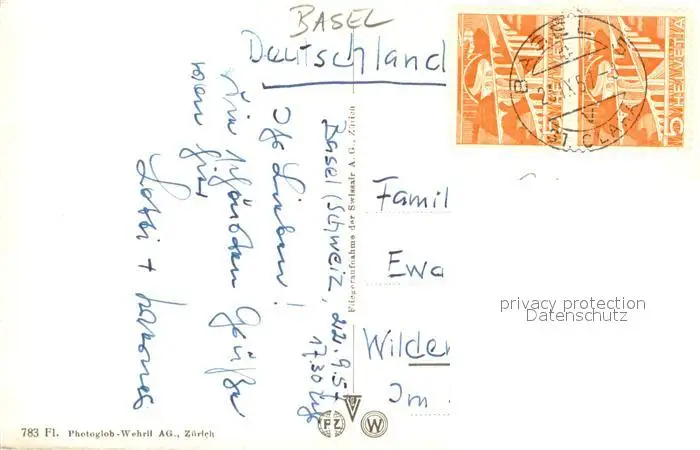 BASEL
Deutschland
HELVETIA
5
HELVETIA
5
BASEL 5
CLARA
Basel (Schweiz, 22.9.51
17.30 Uhr
Ihr Lieben!
Die schönsten Grüße
von hier
Lotti +
Famil
Ewa
Wilden
Im
Fliegeraufnahme der Swissair A. G., Zürich
privacy protection
Datenschutz
PZ
W
783 Fl. Photoglob-Wehrli AG., Zürich